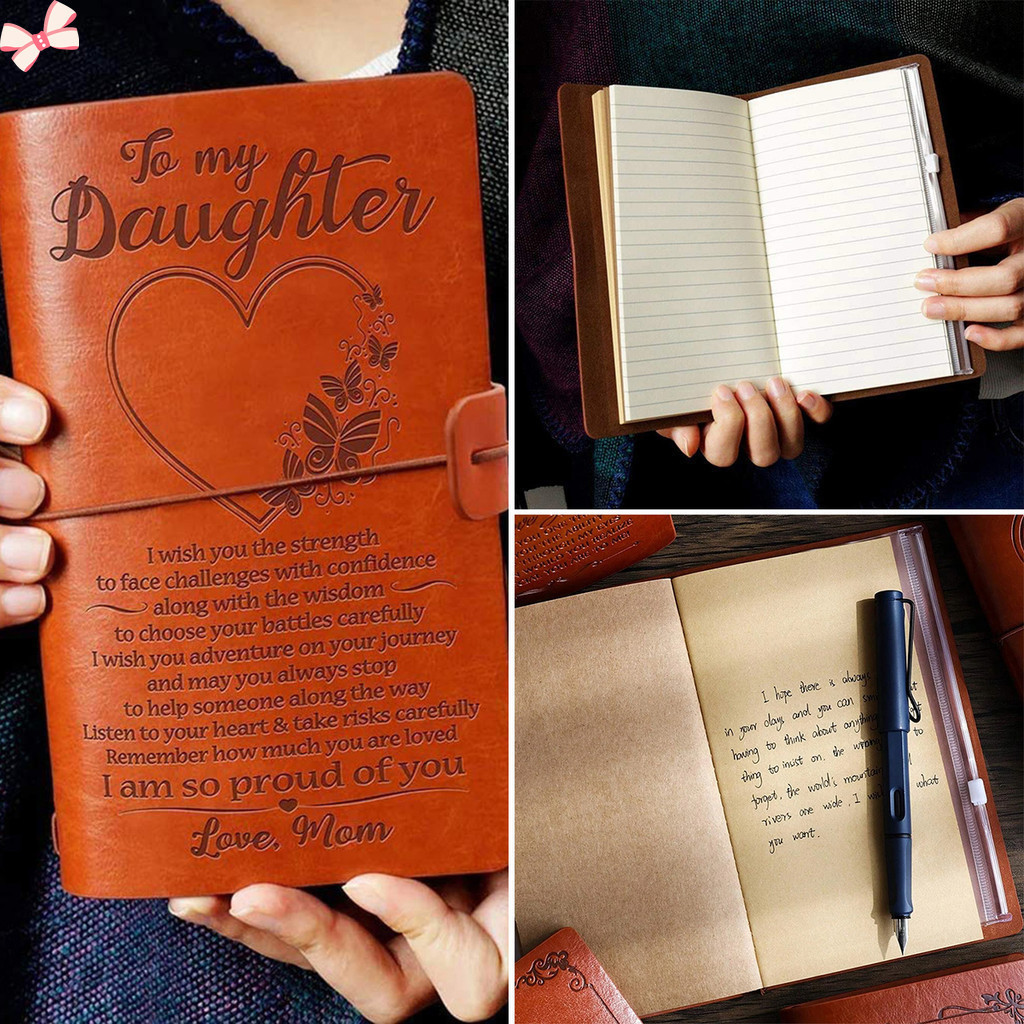 To my
Daughter
I wish you the strength
to face challenges with confidence
along with the wisdom
to choose your battles carefully
I wish you adventure on your journey
and may you always stop
to help someone along the way
Listen to your heart & take risks carefully
Remember how much you are loved
I am so proud of you
Love, Mom
I hope there is always
in your days and you can
having to think about anything
thing to insist on. the to
forget, the world's what
rivers are wide. I
you want.